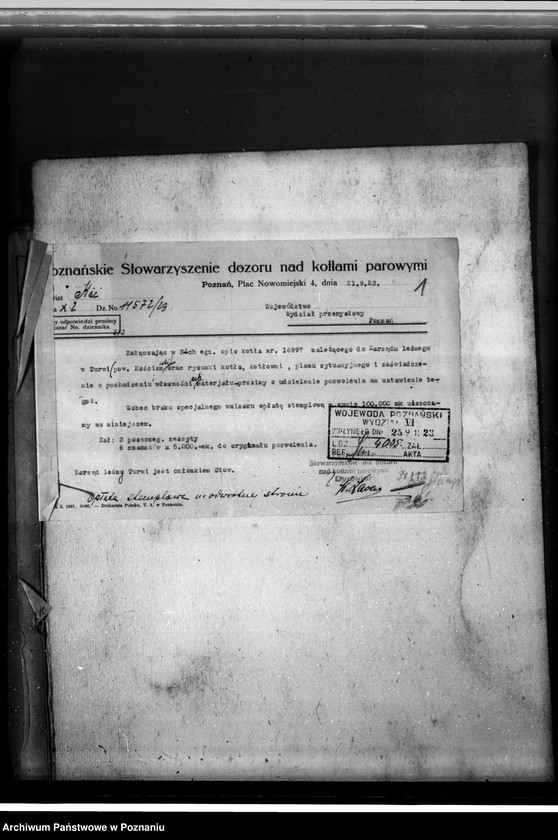 oznańskie Słowarzyszenie dozoru nad kotłami parowymi
Poznań, Plac Nowomiejski 4, dnia 21.9.23.
1
Dz. No. 11572/23
Województwo
y odpowiedzi prosimy
Wydział przemysłowy
No. dziennika.
Poznań
Załączając w 3ch egz. opis kotła nr. 16997 należącego do Zarządu leśnego
w Turwi pow. Kościan oraz rysunki kotła, kotłowni , planu sytuacyjnego i zaświadcze-
nie o pochodzeniu własności materjału prosimy o udzielenie pozwolenia na ustawienie te-
goż.
Wobec braku specjalnego wniosku opłatę stemplową w sumie 100.000 mk uiszcza-
my na niniejszem.
Zał: 3 poszczeg. zeszyty
6 znaczków a 5.000.-mk. do oryginału pozwolenia.
WOJEWODA POZNAŃSKI
WYDZIAŁ VI
WPŁYNĘŁO DN. 25 9 1923
L.DZ. 4005 ZAŁ.
REF. AKTA
Zarząd leśny Turwi jest członkiem Stow.
Stowarzyszenie dla dozoru
nad kotłami parowymi
Opłata stemplowa na odwrotnej stronie
Drukarnia Polska, T. A. w Poznaniu.
Archiwum Państwowe w Poznaniu